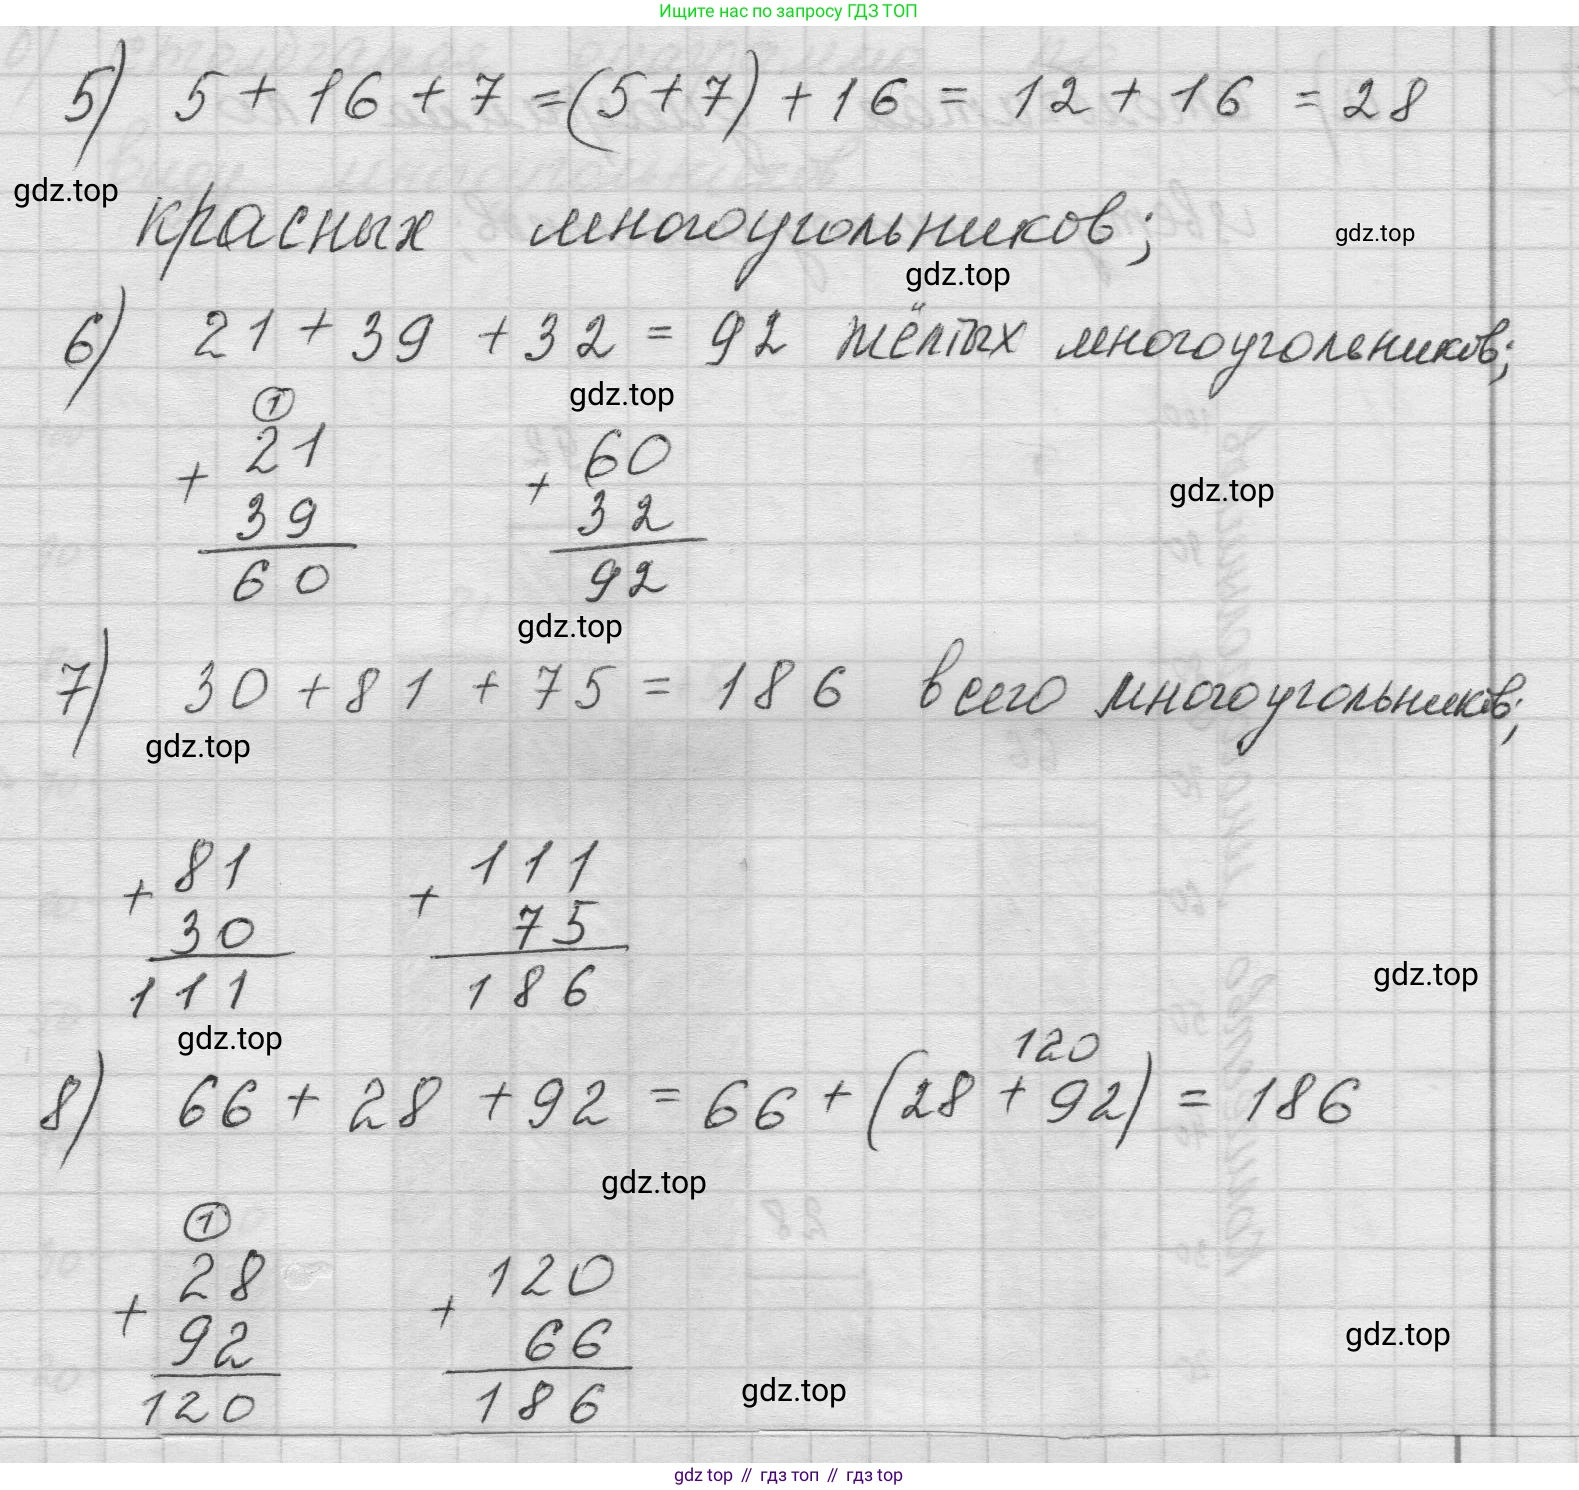 Ищите нас по запросу ГДЗ ТОП
5) 5 + 16 + 7 = (5 + 7) + 16 = 12 + 16 = 28
gdz.top
красных многоугольников;
gdz.top
gdz.top
6) 21 + 39 + 32 = 92 жёлтых многоугольников;
gdz.top
1
21 60
+ +
39 32
60 92
gdz.top
gdz.top
7) 30 + 81 + 75 = 186 всего многоугольников;
gdz.top
81 111
+ +
30 75
111 186
gdz.top
gdz.top
120
8) 66 + 28 + 92 = 66 + (28 + 92) = 186
gdz.top
1
28 120
+ +
92 66
120 186
gdz.top
gdz.top
gdz top // гдз топ // гдз top